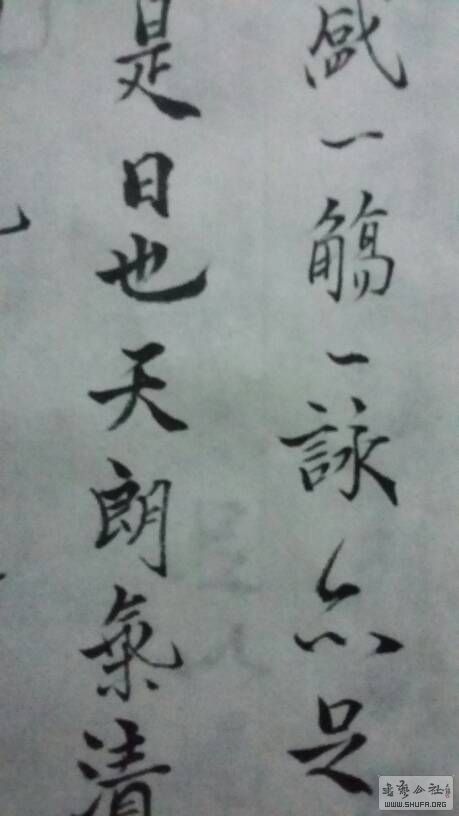 盛一觴一詠亦足
是日也天朗氣清
書藝公社
WWW.SHUFA.ORG